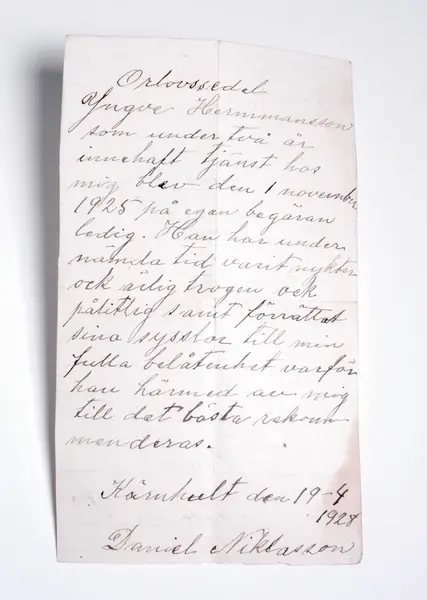 Orlovssedel
Yngve Hermmansson
som under två år
innehaft tjänst hos
mig blev den 1 november
1925 på egen begäran
ledig. Han har under
nämda tid varit nykter
ock ärlig trogen ock
pålitlig samt förrättat
sina sysslor till min
fulla belåtenhet varför
han härmed av mig
till det bästa rekom
menderas.
Kärnhult den 19-4
1928
Daniel Niklasson